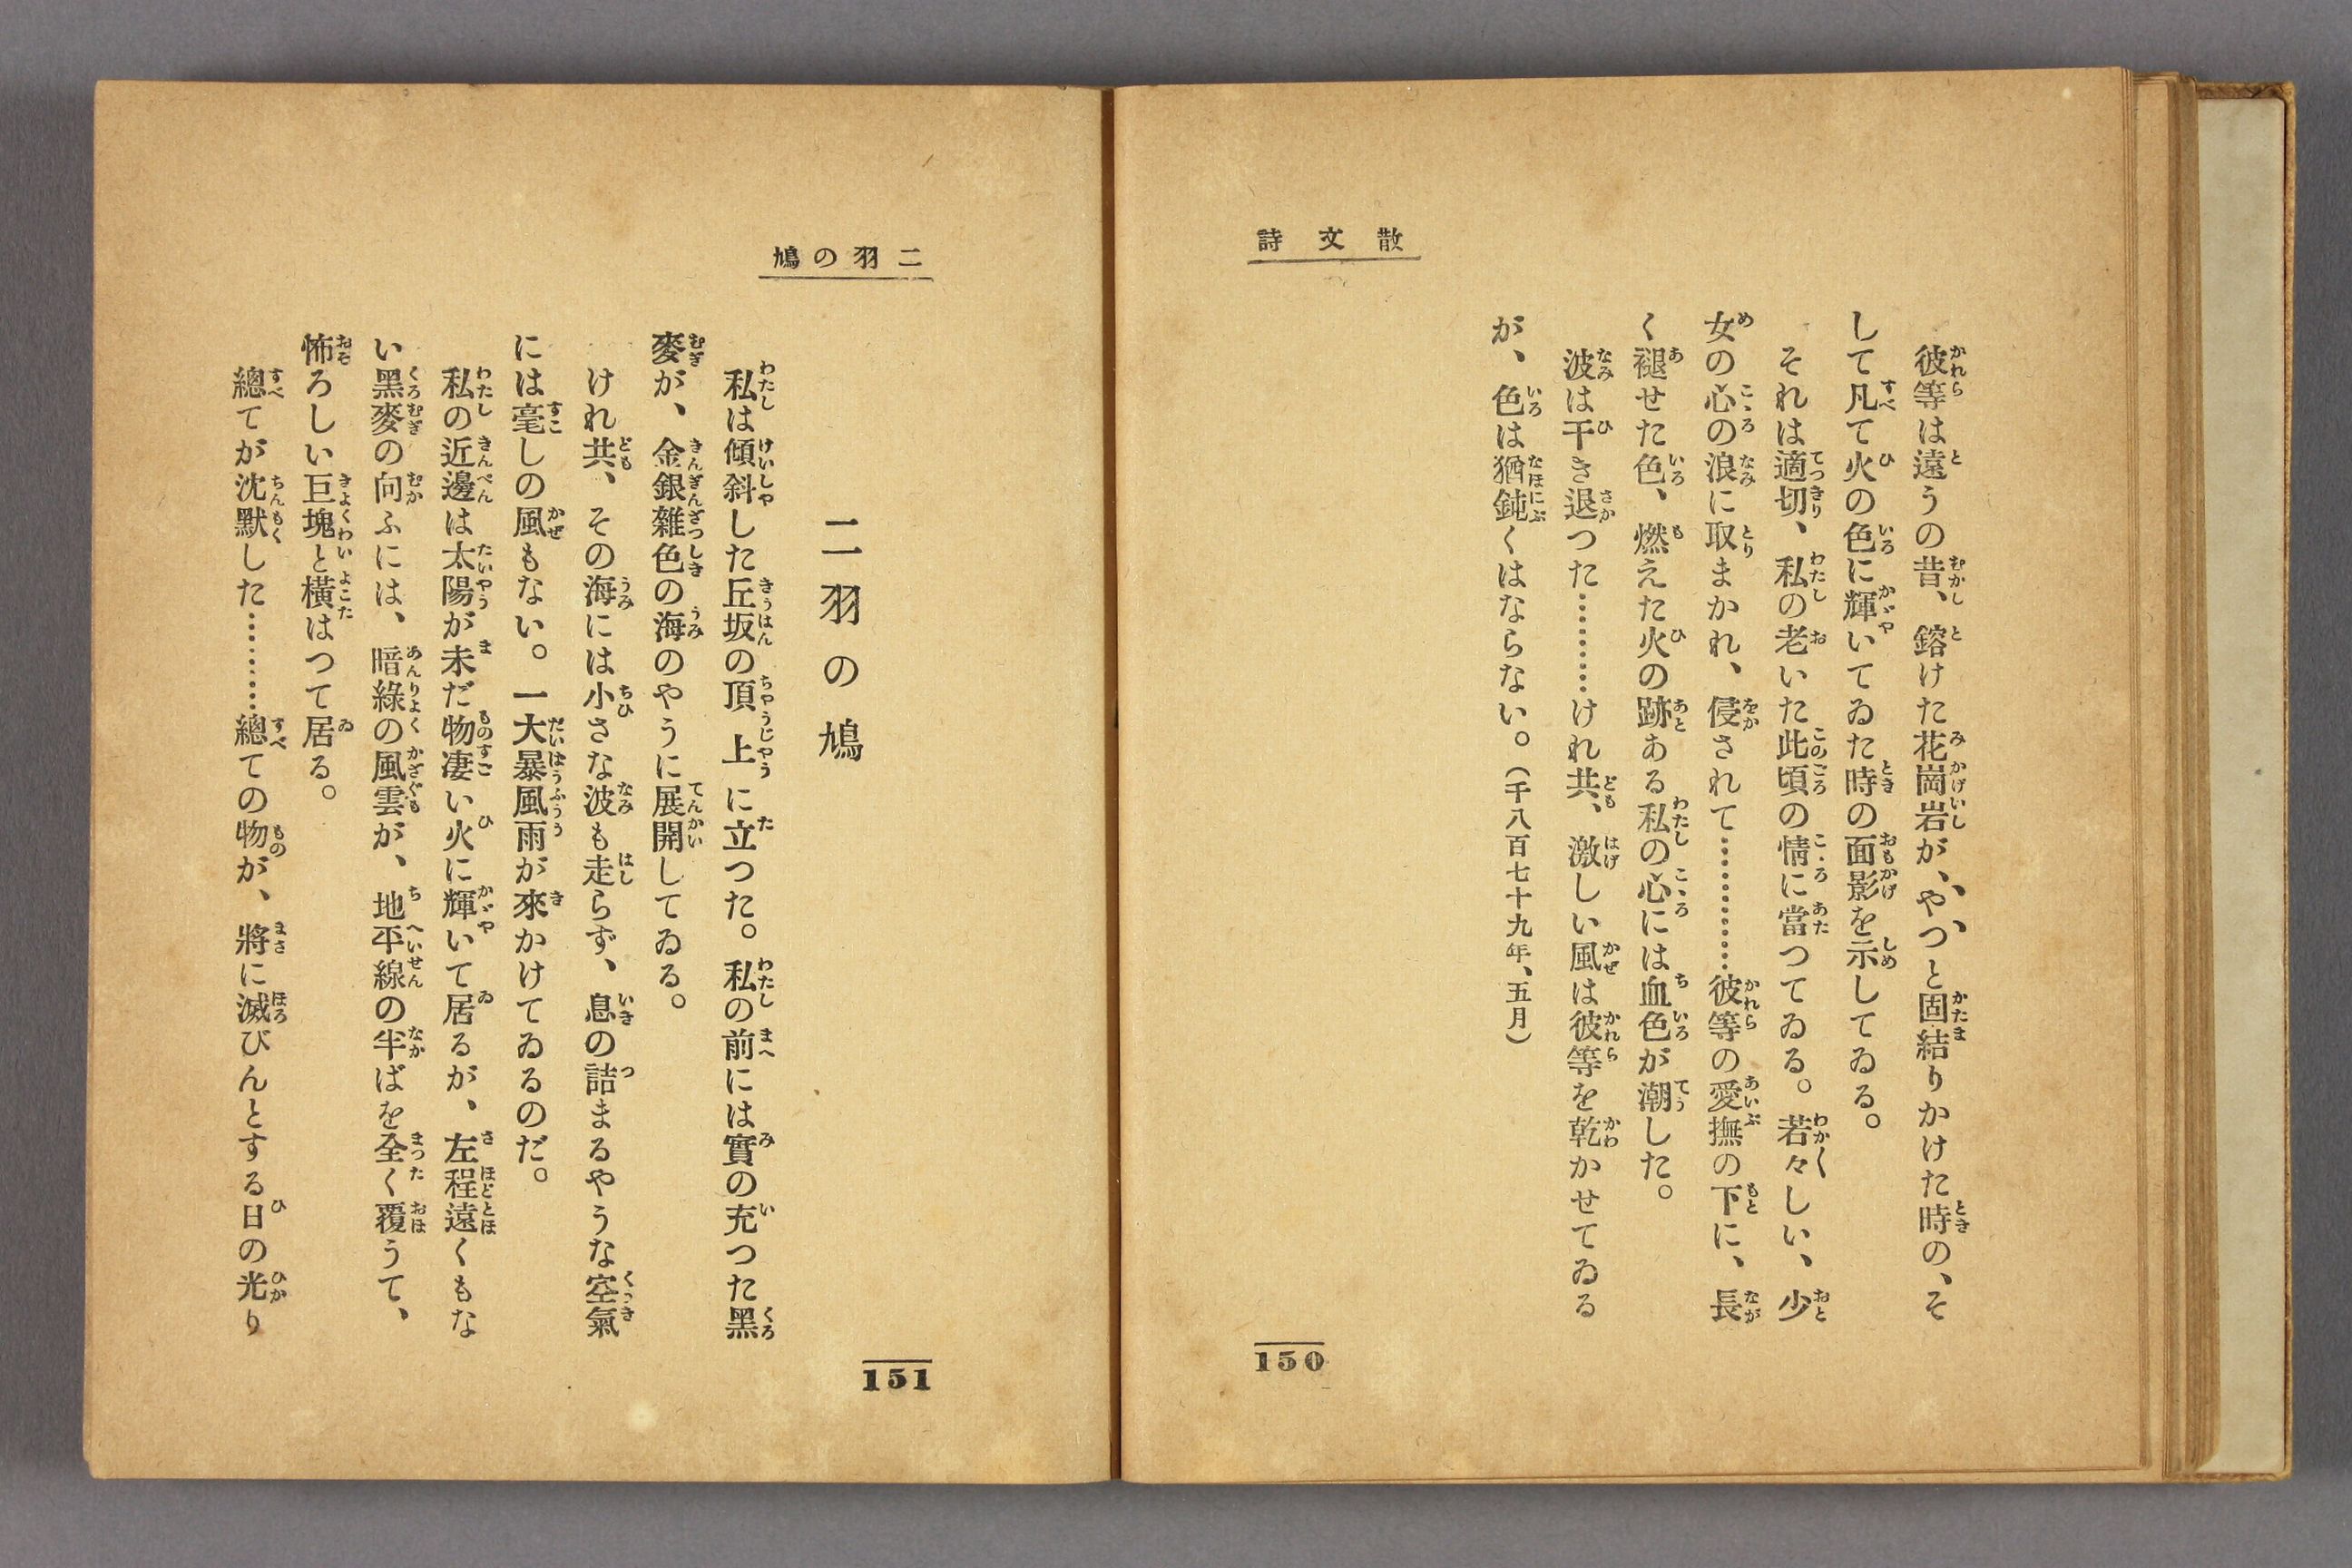 散文詩
彼等は遠うの昔、鎔けた花崗岩が、やつと固結りかけた時の、そ
して凡て火の色に輝いてゐた時の面影を示してゐる。
それは適切、私の老いた此頃の情に當つてゐる。若々しい、少
女の心の浪に取まかれ、侵されて…………彼等の愛撫の下に、長
く褪せた色、燃えた火の跡ある私の心には血色が潮した。
波は干き退つた………けれ共、激しい風は彼等を乾かせてゐる
が、色は猶鈍くはならない。（千八百七十九年、五月）
150
二羽の鳩
二羽の鳩
私は傾斜した丘坂の頂上に立つた。私の前には實の充つた黑
麥が、金銀雜色の海のやうに展開してゐる。
けれ共、その海には小さな波も走らず、息の詰まるやうな空氣
には毫しの風もない。一大暴風雨が來かけてゐるのだ。
私の近邊は太陽が未だ物凄い火に輝いて居るが、左程遠くもな
い黑麥の向ふには、暗綠の風雲が、地平線の半ばを全く覆うて、
怖ろしい巨塊と橫はつて居る。
總てが沈默した………總ての物が、將に滅びんとする日の光り
151